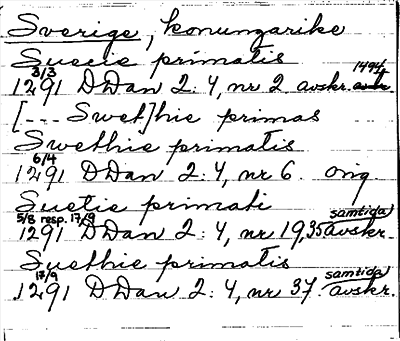 Sverige, konungarike
Suecie primatis
3/3 1291 DDan 2:4, nr 2 avskr. 1494
[--- Swet]hie primas
Swethie primatis
6/4 1291 DDan 2:4, nr 6. orig.
Suetie primati
5/8 resp. 17/9 1291 DDan 2:4, nr 19, 35 samtida avskr.
Suethie primatis
17/9 1291 DDan 2:4, nr 37. samtida avskr.